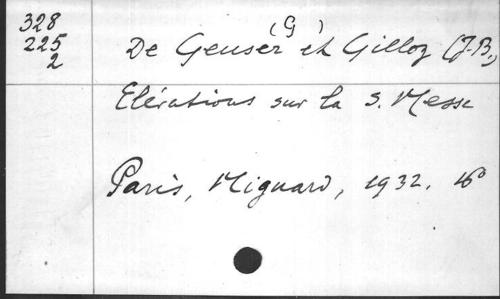 328
225
2
De Geuser (G) et Gilloz (J-B.)
Elévations sur la S. Messe
Paris, Mignard, 1932. 16°